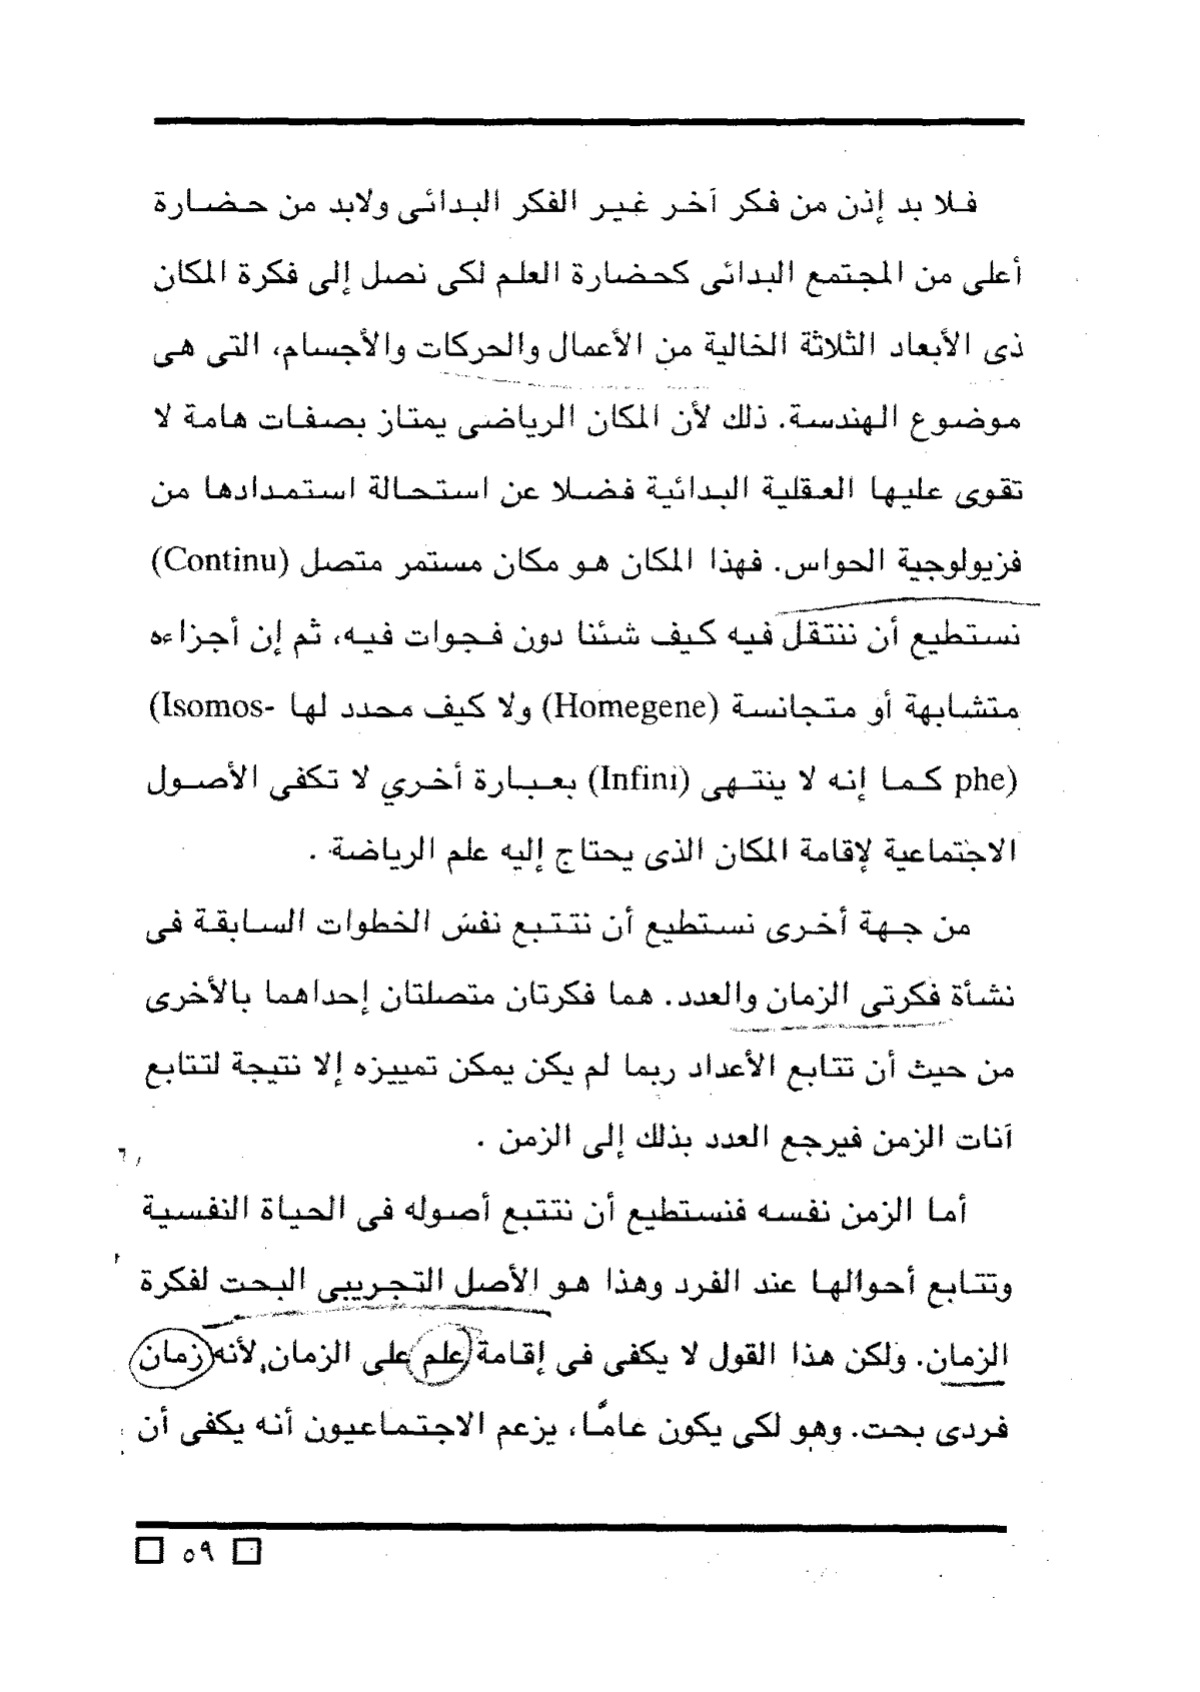 فلا بد إذن من فكر آخر غير الفكر البدائى ولابد من حضارة
أعلى من المجتمع البدائى كحضارة العلم لكى نصل إلى فكرة المكان
ذى الأبعاد الثلاثة الخالية من الأعمال والحركات والأجسام، التى هى
موضوع الهندسة. ذلك لأن المكان الرياضى يمتاز بصفات هامة لا
تقوى عليها العقلية البدائية فضلا عن استحالة استمدادها من
فزيولوجية الحواس. فهذا المكان هو مكان مستمر متصل (Continu)
نستطيع أن ننتقل فيه كيف شئنا دون فجوات فيه، ثم إن أجزاءه
متشابهة أو متجانسة (Homegene) ولا كيف محدد لها (Isomos-
phe) كما إنه لا ينتهى (Infini) بعبارة أخري لا تكفى الأصول
الاجتماعية لإقامة المكان الذى يحتاج إليه علم الرياضة .
من جهة أخرى نستطيع أن نتتبع نفس الخطوات السابقة فى
نشأة فكرتى الزمان والعدد. هما فكرتان متصلتان إحداهما بالأخرى
من حيث أن تتابع الأعداد ربما لم يكن يمكن تمييزه إلا نتيجة لتتابع
آنات الزمن فيرجع العدد بذلك إلى الزمن .
أما الزمن نفسه فنستطيع أن نتتبع أصوله فى الحياة النفسية
وتتابع أحوالها عند الفرد وهذا هو الأصل التجريبى البحت لفكرة
الزمان. ولكن هذا القول لا يكفى فى إقامة علم على الزمان، لأنه زمان
فردى بحت. وهو لكى يكون عامًا، يزعم الاجتماعيون أنه يكفى أن
٥٩